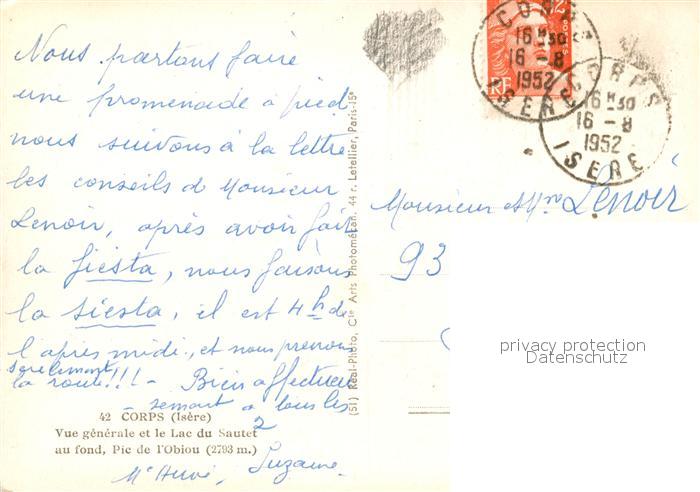 Nous partons faire
une promenade à pied
nous suivons à la lettre
les conseils de Monsieur
Lenoir, après avoir fait
la fiesta, nous faisons
la siesta, il est 4h de
l'après midi, et nous prenons
seulement
la route!!! - Bien affectueu
- sement à tous les
2
Suzanne
42 CORPS (Isère)
Vue générale et le Lac du Sautet
au fond, Pic de l'Obiou (2793 m.)
(51) Réal-Photo, Cie Arts Photomécan. 44 r. Letellier, Paris-15e
CORPS
16 H30
16 - 8
1952
ISERE
RF
POSTES
CORPS
16 H30
16 - 8
1952
ISERE
Monsieur et Mme Lenoir
93
privacy protection
Datenschutz